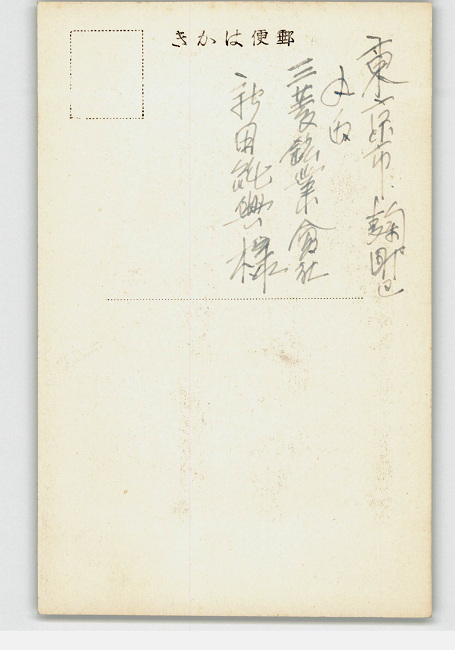 郵便はかき
東京市麹町区
丸ノ内
三菱鉱業會社
新田
様